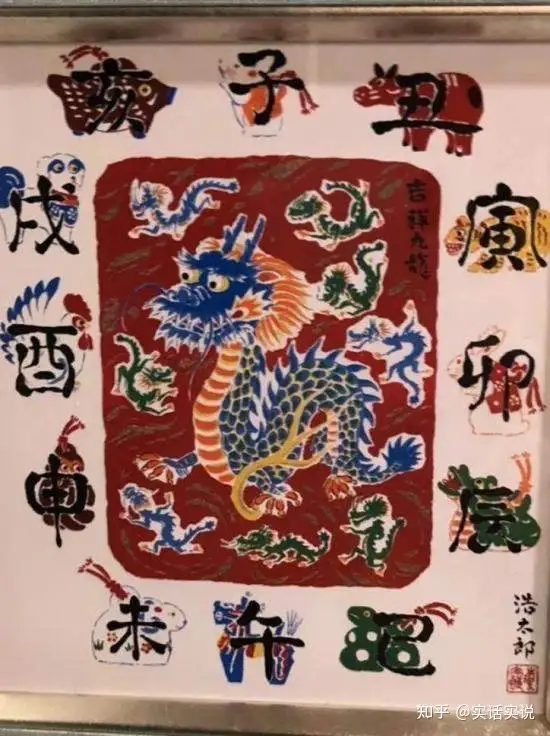 亥 子 丑
戌 寅
酉 卯
申 辰
未 午 巳
吉祥九龍
浩太郎
知乎 @实话实说